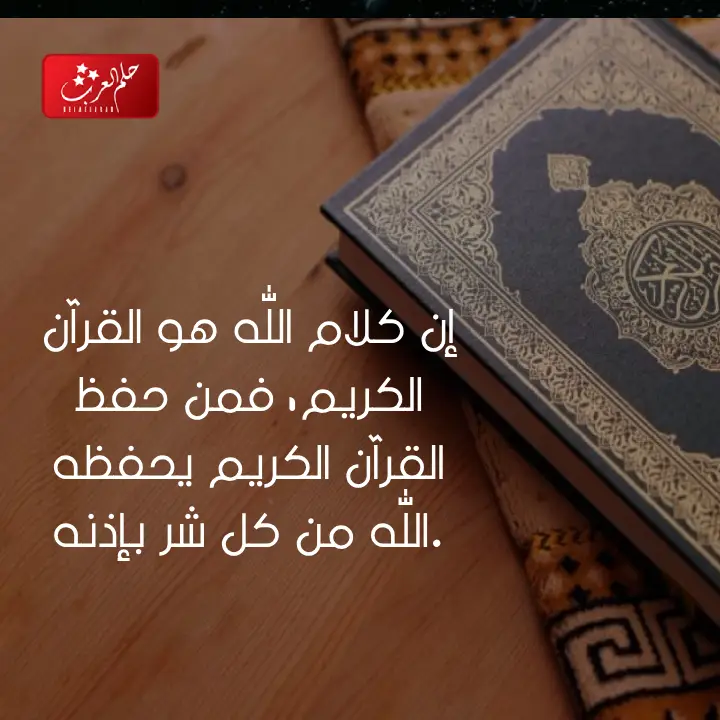 حلم العرب
إن كلام الله هو القرآن
الكريم، فمن حفظ
القرآن الكريم يحفظه
الله من كل شر بإذنه.